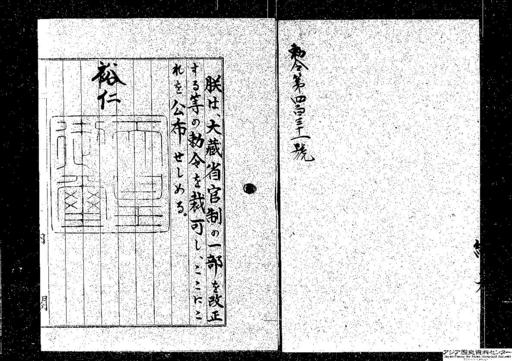 勅令第四百三十一號
朕は、大藏省官制の一部を改正
する等の勅令を裁可し、ここにこ
れを公布せしめる。
裕仁
天皇御璽
内閣
アジア歴史資料センター